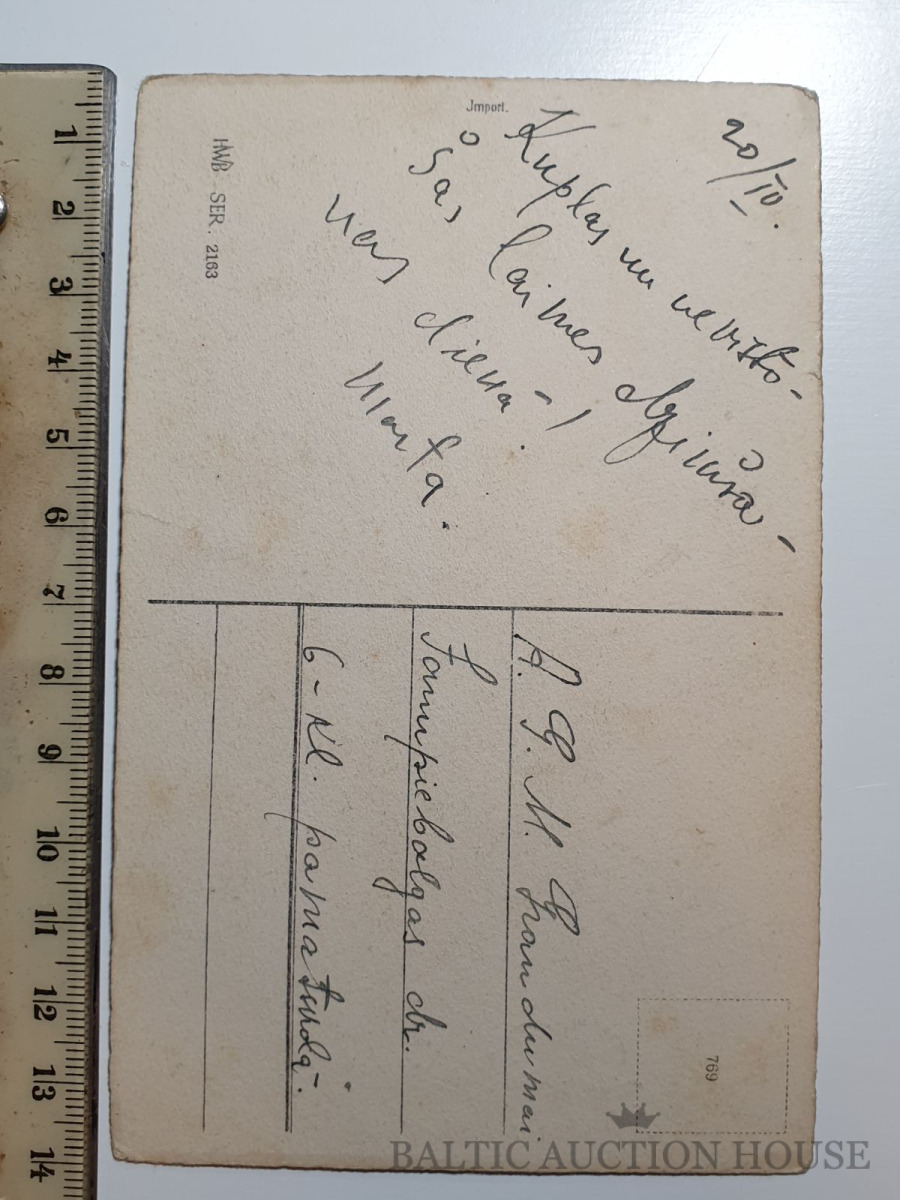 Import.
20/IV.
Kuplas un nevīsto-
šas laimes dzimša-
nas dienā!
Marta.
HWB SER. 2163
A. G. M. Grandumai
Jaunpiebalgas dr.
6-kl. pamatskolā.
769
BALTIC AUCTION HOUSE
1
2
3
4
5
6
7
8
9
10
11
12
13
14